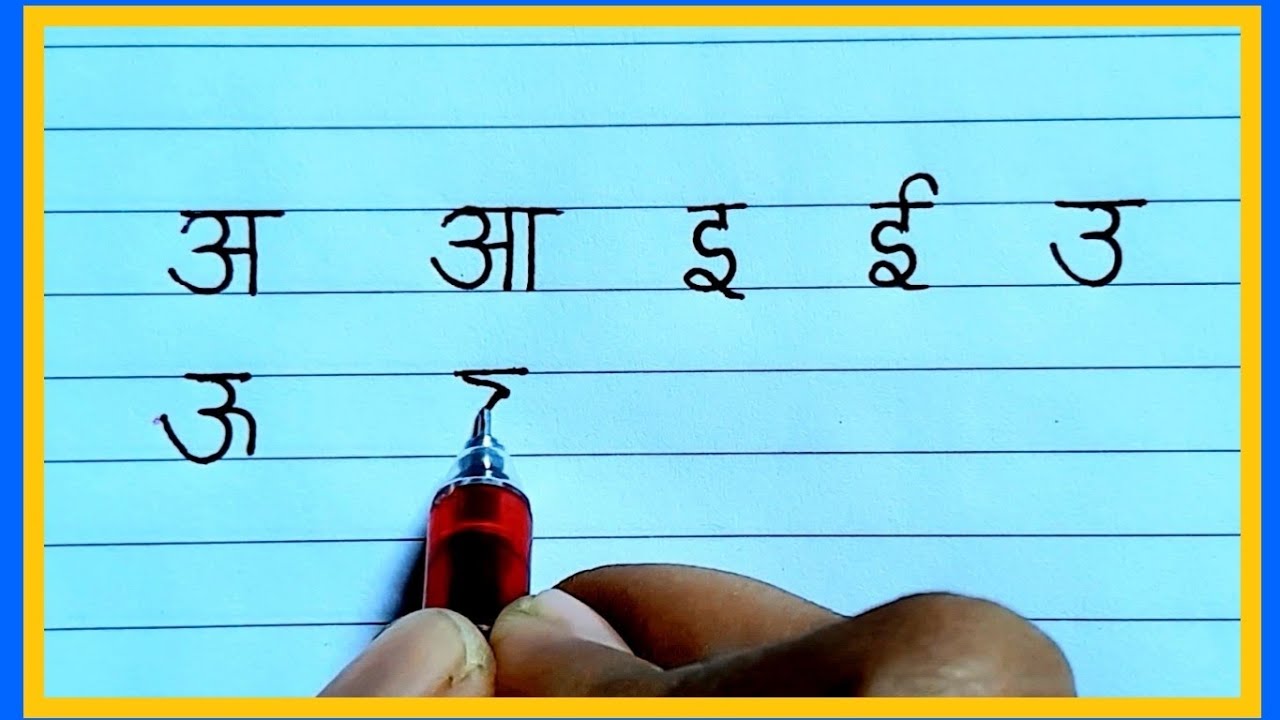 अ आ इ ई उ
ऊ